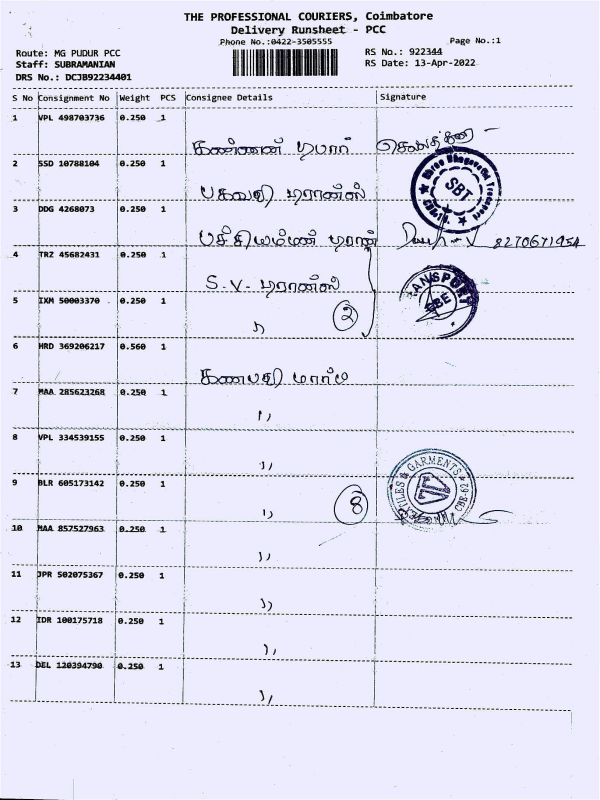 THE PROFESSIONAL COURIERS, Coimbatore
Delivery Runsheet - PCC
Phone No.:0422-3505555 Page No.:1
Route: MG PUDUR PCC RS No.: 922344
Staff: SUBRAMANIAN RS Date: 13-Apr-2022
DRS No.: DCJB92234401
S No Consignment No Weight PCS Consignee Details Signature
1 VPL 498703736 0.250 1
கண்ணன் டிபார்
2 SSD 10788104 0.250 1
பகவதி டிரான்ஸ்
SBT
3 DDG 4268073 0.250 1
டிரான் 8270671954
4 TRZ 45682431 0.250 1
S.V. டிரான்ஸ்
TRANSPORT
CBE
5 IXM 50003370 0.250 1
,, 2
6 HRD 369206217 0.560 1
கணபதி மார்ம
7 MAA 285623268 0.250 1
,,
8 VPL 334539155 0.250 1
,,
TEXTILES & GARMENTS CBE-62
9 BLR 605173142 0.250 1
,, 8
10 MAA 857527963 0.250 1
,,
11 JPR 502075367 0.250 1
,,
12 IDR 100175718 0.250 1
,,
13 DEL 120394790 0.250 1
,,